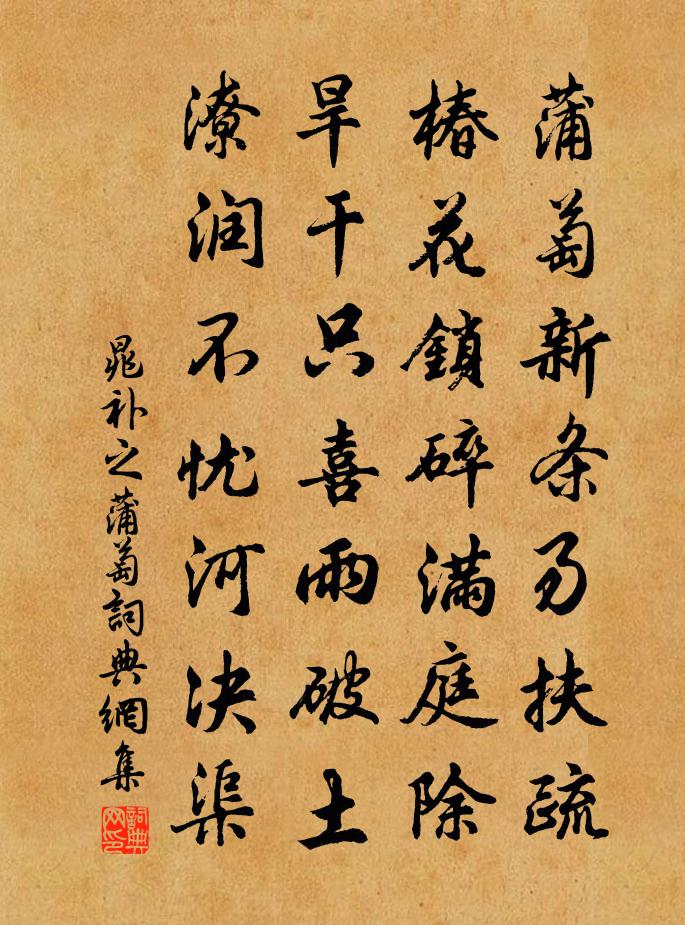 蒲萄新条乃扶疏
椿花鎖碎滿庭除
旱干只喜雨破土
潦润不忧河决渠
晁补之蒲萄詞典網集
詞典网印